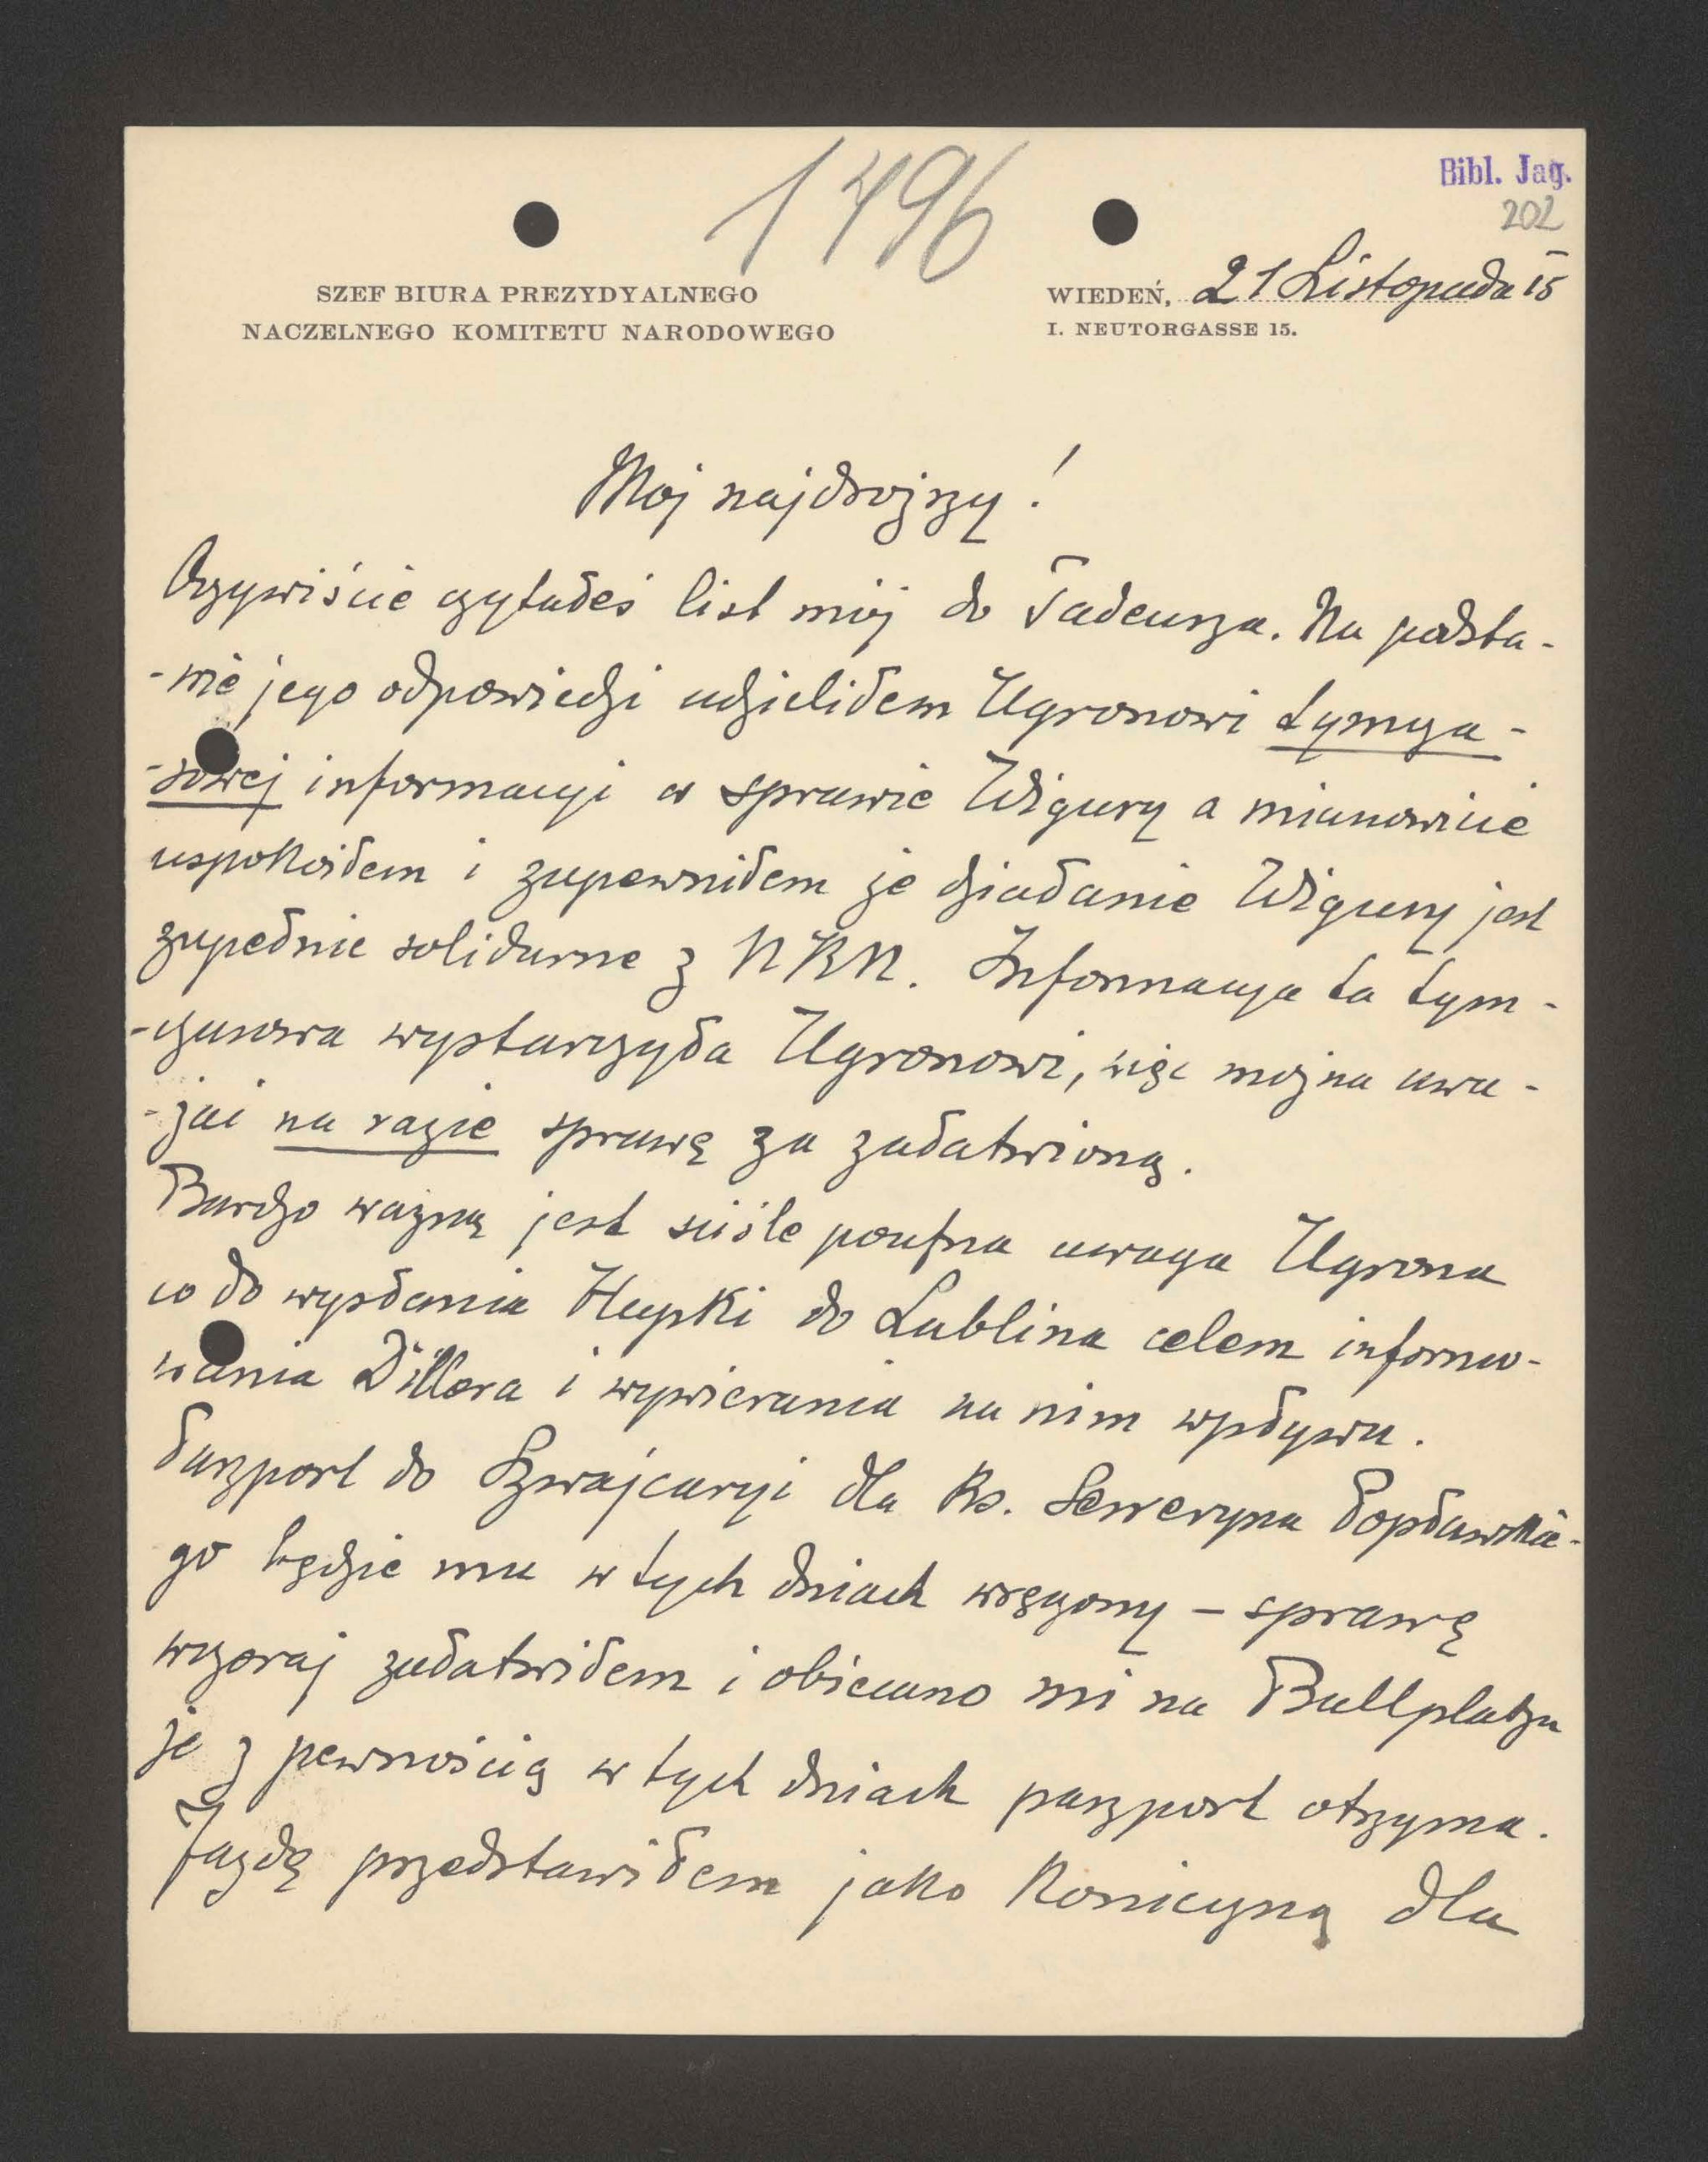 1496
Bibl. Jag.
202
SZEF BIURA PREZYDYALNEGO
NACZELNEGO KOMITETU NARODOWEGO
WIEDEŃ, 21 Listopada 15
I. NEUTORGASSE 15.
Mój najdroższy!
Oczywiście czytałeś list mój do Tadeusza. Na podsta-
-wie jego odpowiedzi udzieliłem Ugronowi tymcza-
-sowej informacyi w sprawie Wigury a mianowicie
uspokoiłem i zapewniłem że działanie Wigury jest
zupełnie solidarne z NKN. Informacya ta tym-
-czasowa wystarczyła Ugronowi, więc można uwa-
-żać na razie sprawę za załatwioną.
Bardzo ważną jest ściśle poufna uwaga Ugrona
co do wysłania Hupki do Lublina celem informo-
wania Dillera i wywierania na nim wpływu.
Paszport do Szwajcaryi dla ks. Seweryna Popławskie-
go będzie mu w tych dniach wręczony – sprawę
wczoraj załatwiłem i obiecano mi na Ballplatzu
że z pewnością w tych dniach paszport otrzyma.
Jazdę przedstawiłem jako konieczną dla